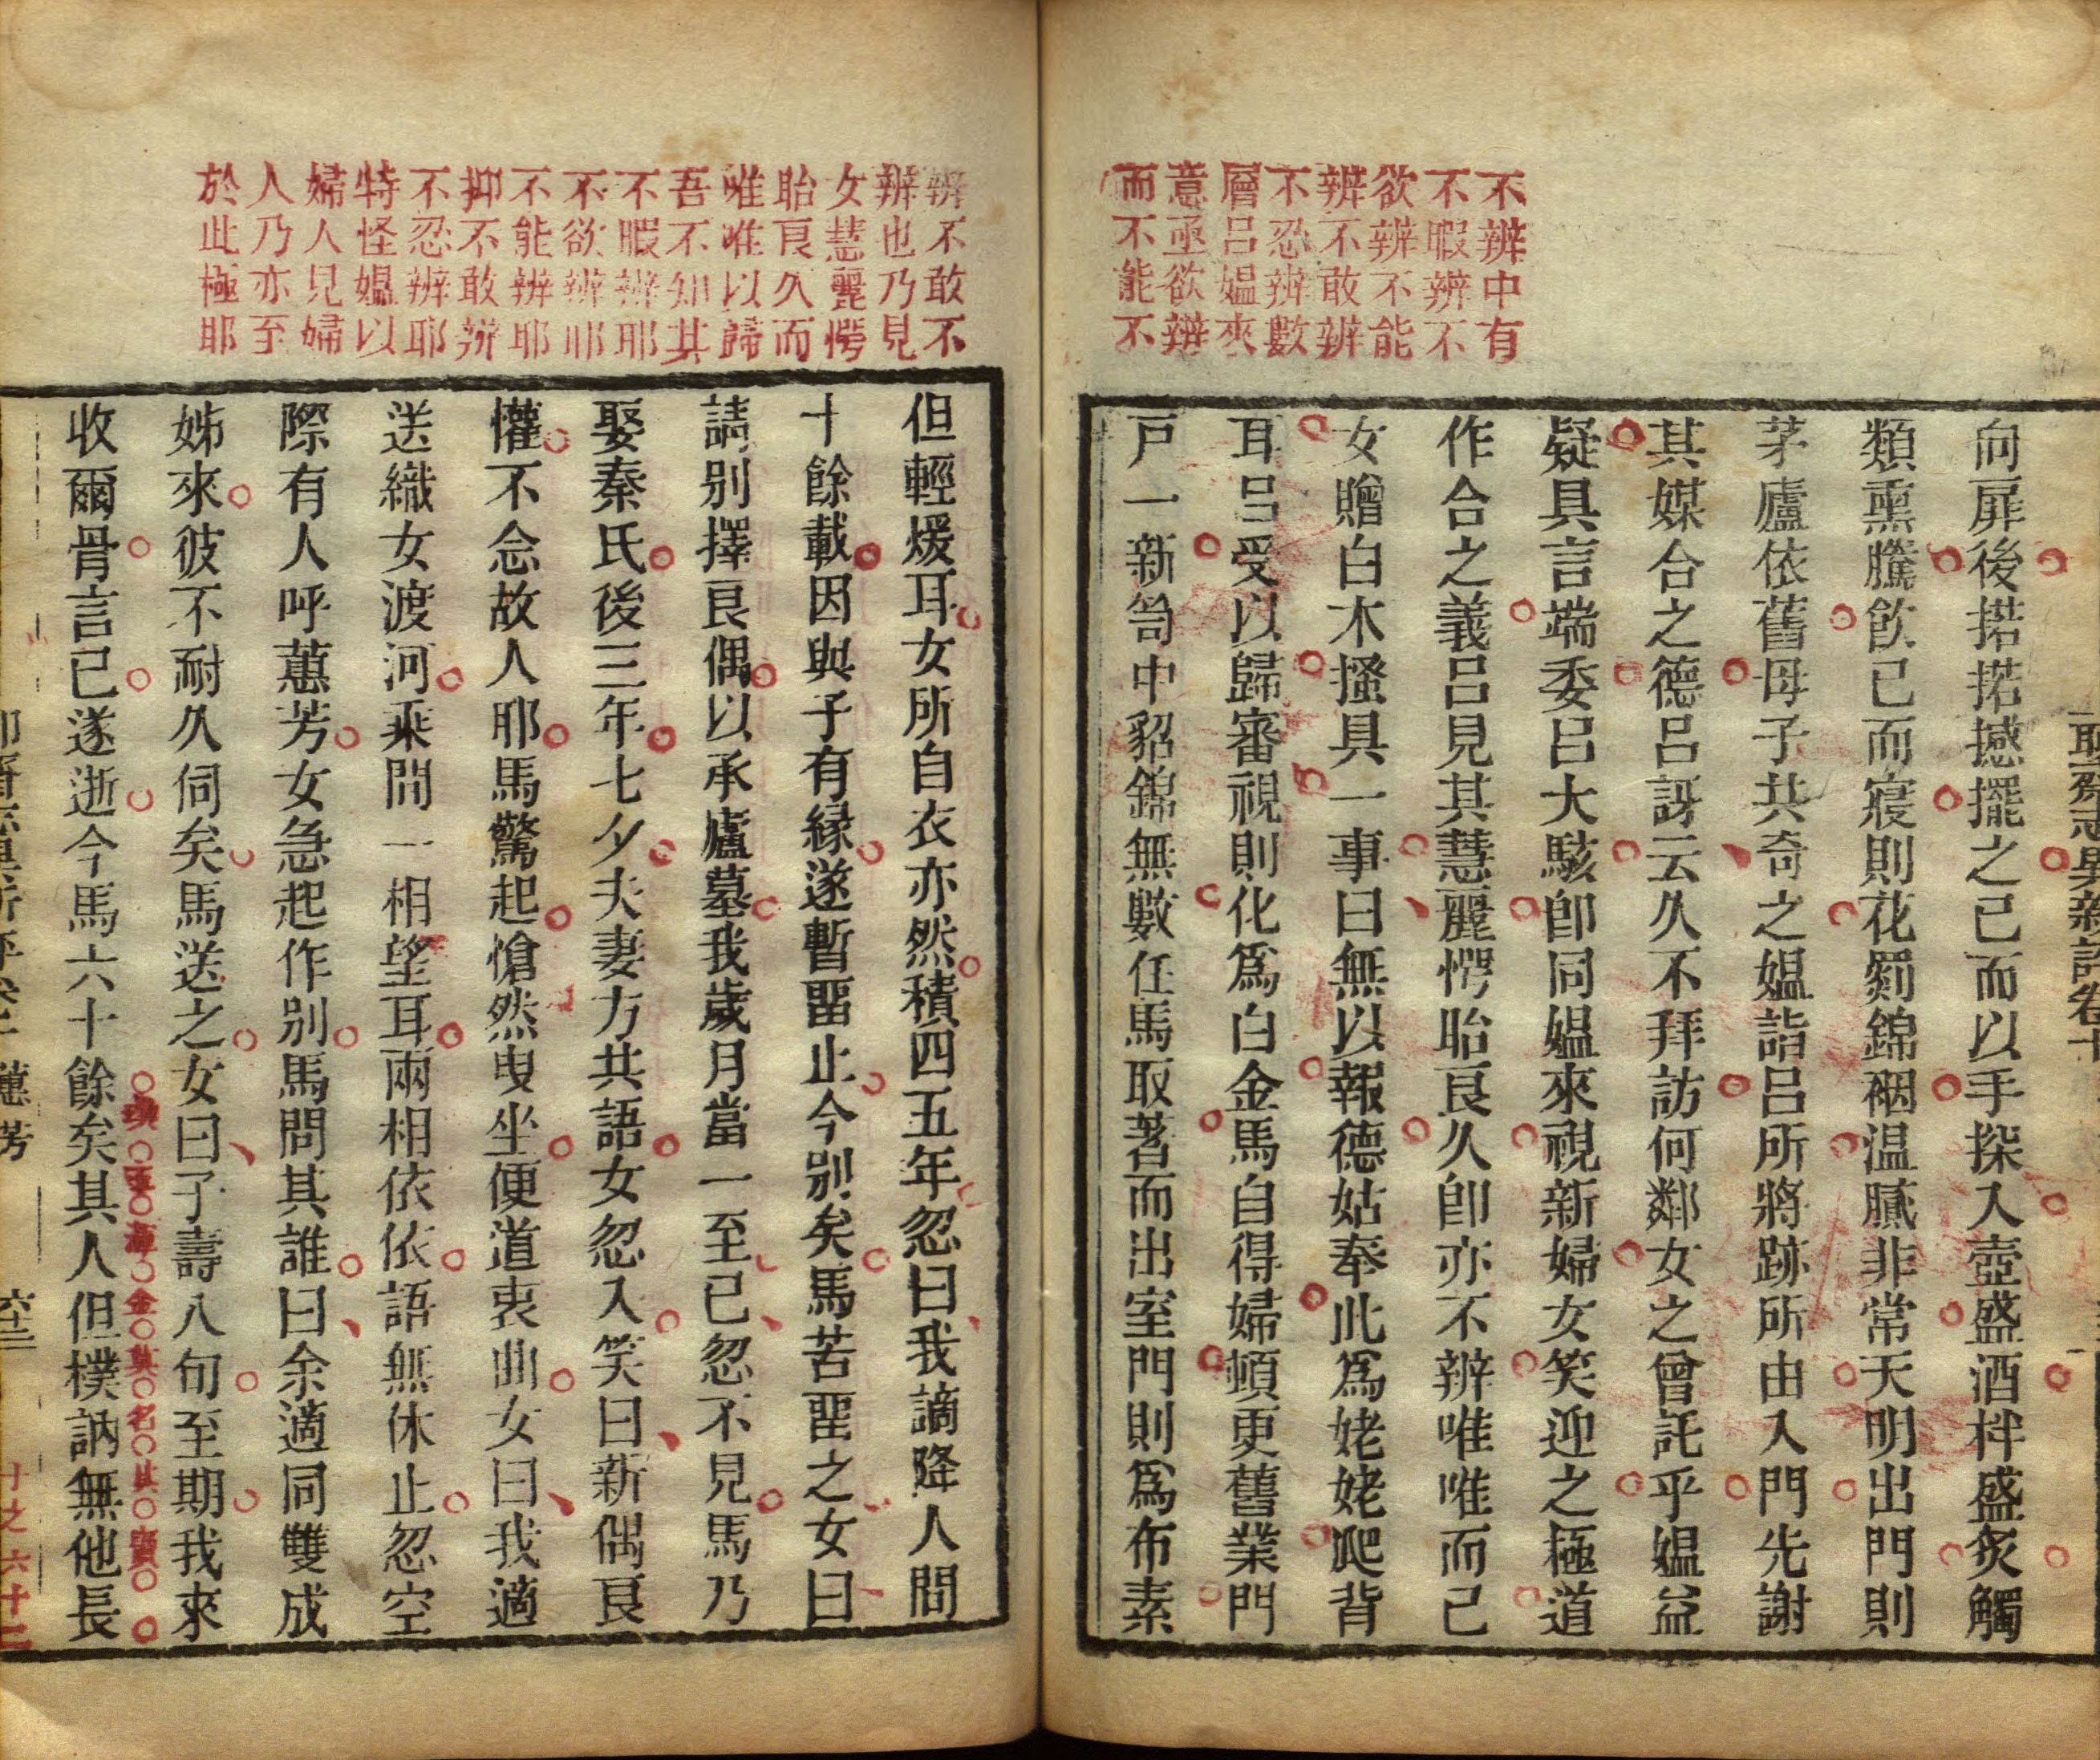 不辨中有
不暇辨不
欲辨不能
辨不敢辨
不忍辨數
層呂媼來
意亟欲辨
而不能不
向扉後㨯㨯撼擺之已而以手探入壺盛酒柈盛炙觸
類熏騰飲已而寢則花罽錦裀温膩非常天明出門則
茅廬依舊母子共奇之媼詣呂所將跡所由入門先謝
其媒合之德呂訝云久不拜訪何鄰女之曾託乎媼益
疑具言端委呂大駭卽同媼來視新婦女笑迎之極道
作合之義呂見其慧麗愕眙良久卽亦不辨唯唯而已
女贈白木搔具一事曰無以報德姑奉此爲姥姥爬背
耳呂受以歸審視則化爲白金馬自得婦頓更舊業門
戸一新笥中貂錦無數任馬取著而出室門則爲布素
辨不敢不
辨也乃見
女慧麗愕
眙良久而
唯唯以歸
吾不知其
不暇辨耶
不欲辨耶
不能辨耶
抑不敢辨
不忍辨耶
特怪媼以
婦人見婦
人乃亦至
於此極耶
但輕煖耳女所自衣亦然積四五年忽曰我謫降人間
十餘載因與子有緣遂暫畱止今别矣馬苦畱之女曰
請别擇良偶以承廬墓我歲月當一至已忽不見馬乃
娶秦氏後三年七夕夫妻方共語女忽入笑曰新偶良
懽不念故人耶馬驚起愴然曳坐便道衷曲女曰我適
送織女渡河乘間一相望耳兩相依依語無休止忽空
際有人呼蕙芳女急起作别馬問其誰曰余適同雙成
姊來彼不耐久伺矣馬送之女曰子壽八旬至期我來
收爾骨言已遂逝今馬六十餘矣其人但樸訥無他長
蕙芳
六十二
十之六十二